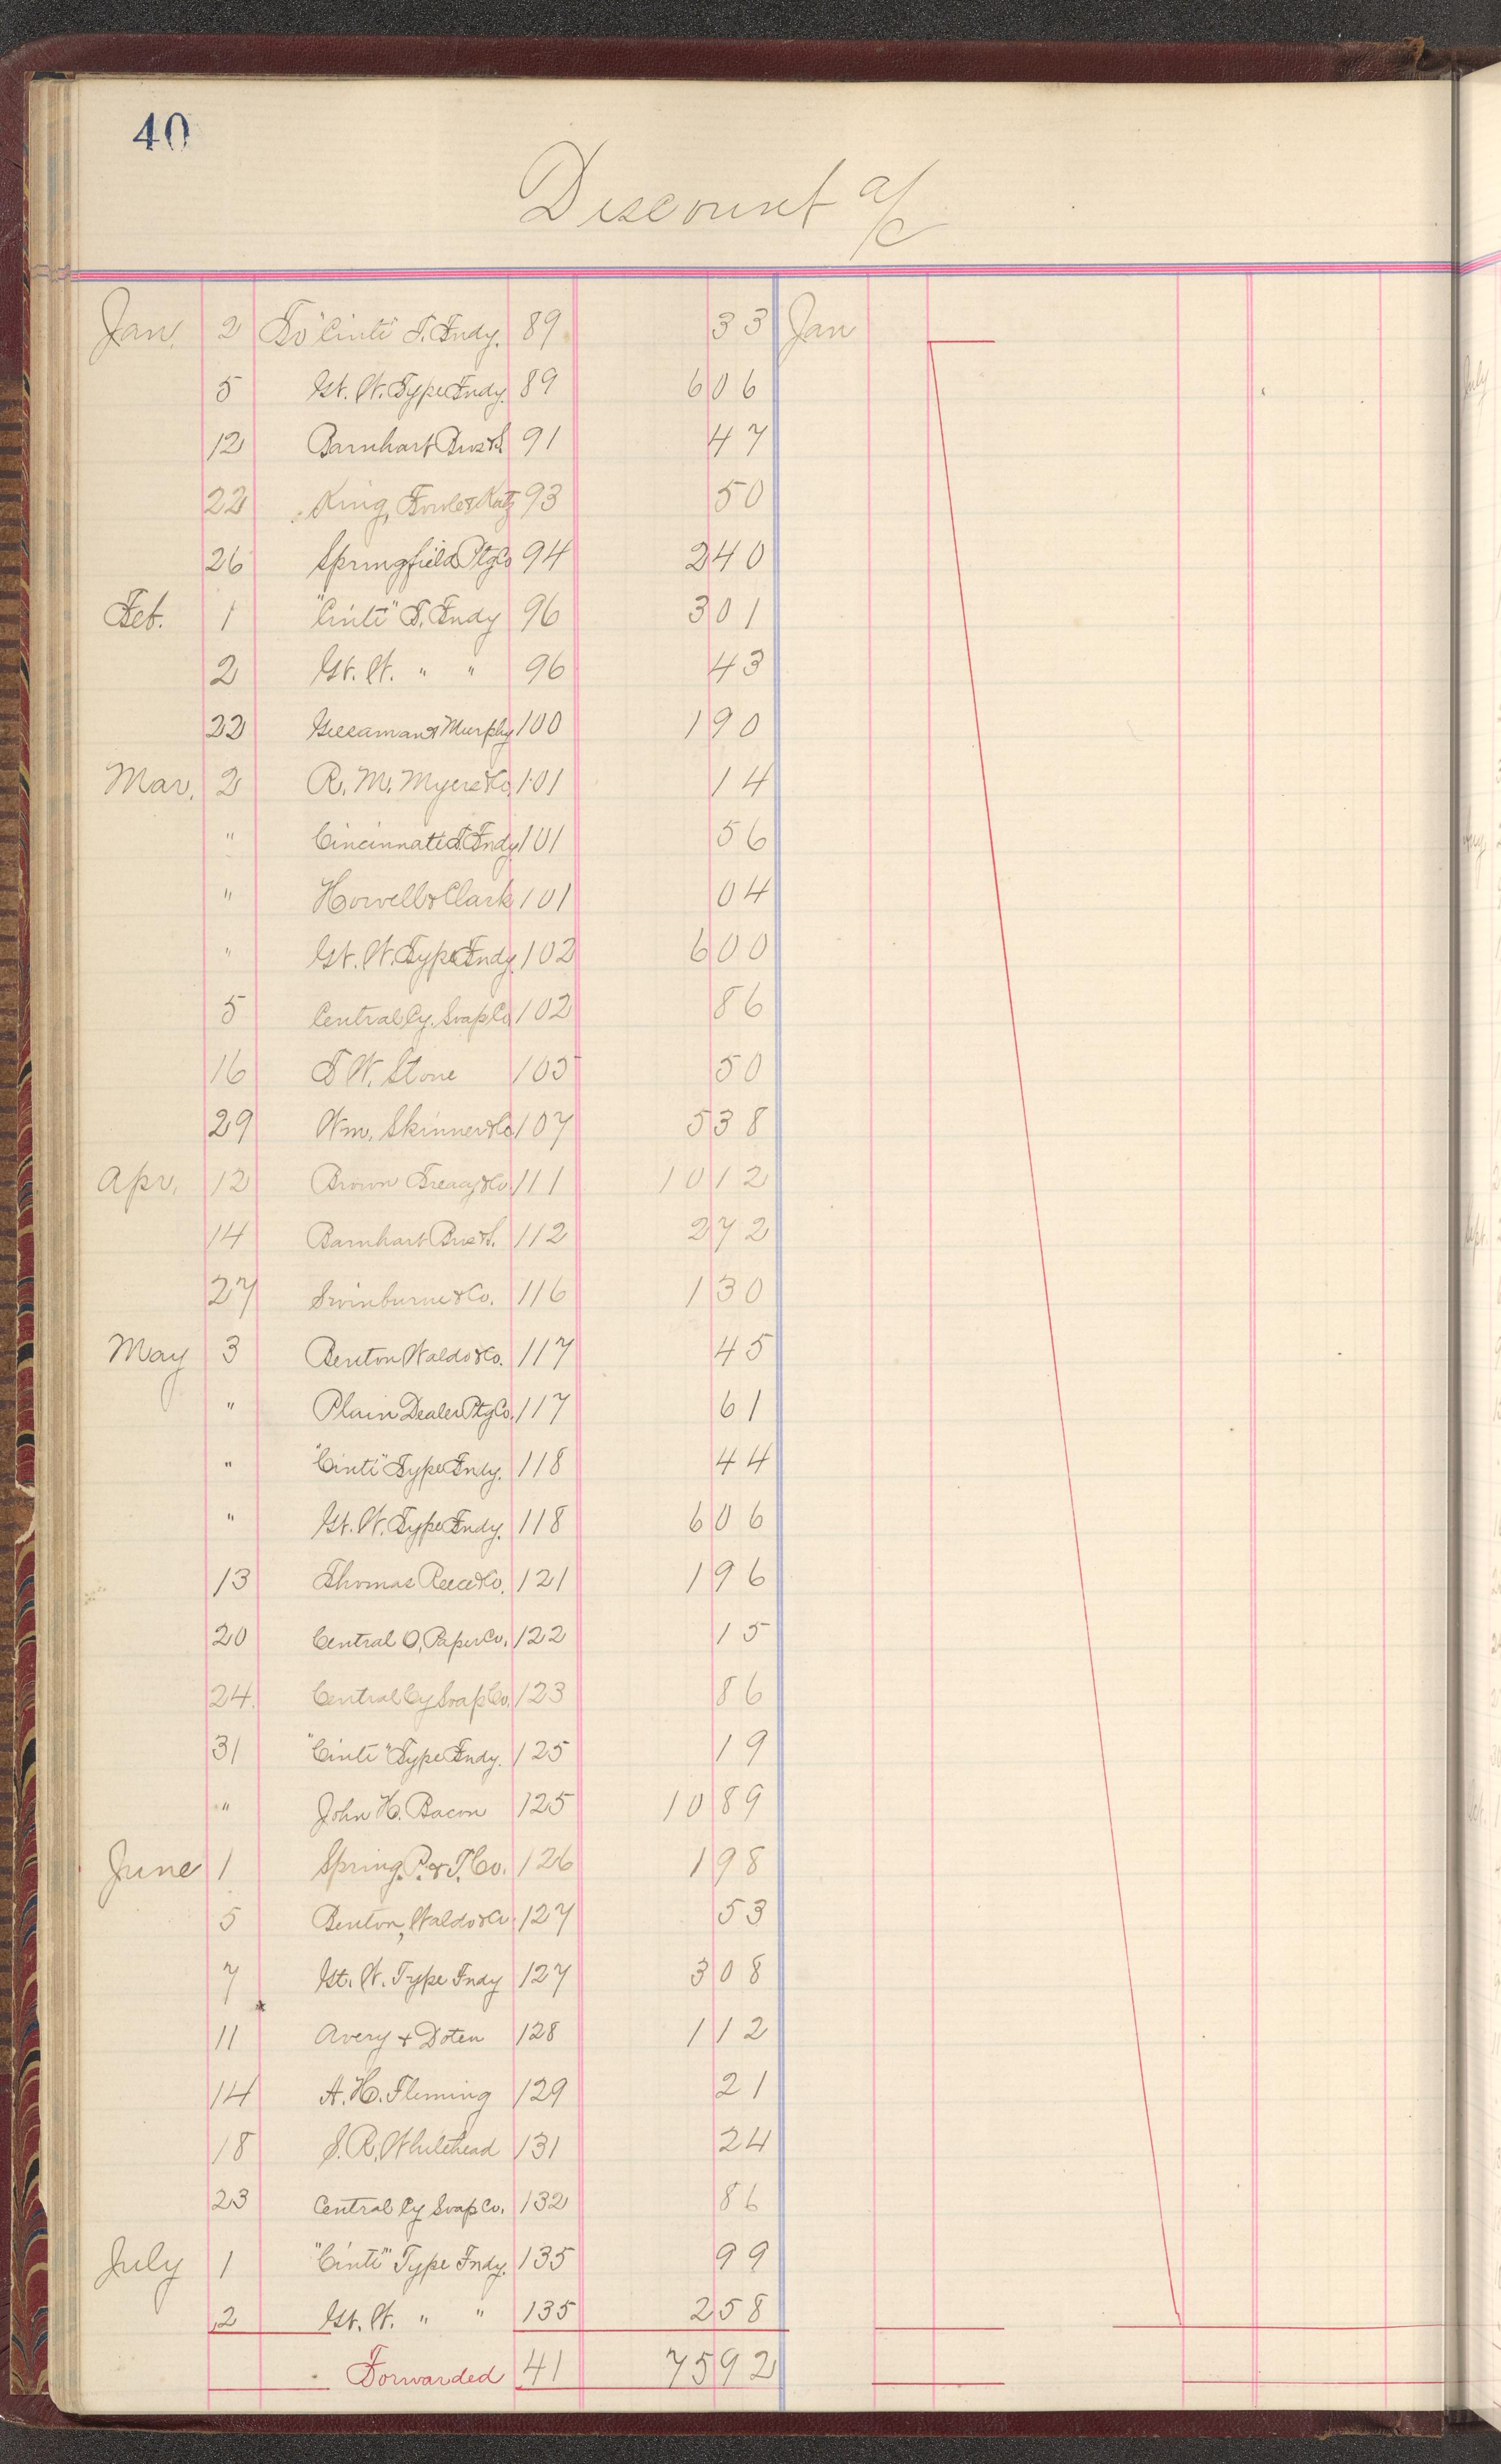 40
Discount a/c
Jan. 2 To "Cinti" T. Fndy. 89 33 Jan
5 Gt. W. Type Fndy. 89 6 06
12 Barnhart Bros & S. 91 47
22 King, Fowle & Katz 93 50
26 Springfield Ptg Co 94 2 40
Feb. 1 "Cinti" T. Fndy 96 3 01
2 Gt. W. " " 96 43
22 Geesaman & Murphy 100 1 90
Mar. 2 R. M. Myers & Co. 101 14
" Cincinnati T. Fndy 101 56
" Howell & Clark 101 04
" Gt. W. Type Fndy. 102 6 00
5 Central Cy. Soap Co 102 86
16 T W. Stone 105 50
29 Wm. Skinner & Co 107 5 38
Apr. 12 Brown Treacy & Co 111 10 12
14 Barnhart Bros & S. 112 2 72
27 Swinburne & Co. 116 1 30
May 3 Benton Waldo & Co. 117 45
" Plain Dealer Ptg Co. 117 61
" "Cinti" Type Fndy. 118 44
" Gt. W. Type Fndy. 118 6 06
13 Thomas Reece & Co. 121 1 96
20 Central O. Paper Co. 122 15
24. Central Cy Soap Co. 123 86
31 "Cinti" Type Fndy. 125 19
" John H. Bacon 125 10 89
June 1 Spring. P. & T. Co. 126 1 98
5 Benton, Waldo & Co. 127 53
7 Gt. W. Type Fndy 127 3 08
11 Avery + Doten 128 1 12
14 A. H. Fleming 129 21
18 S. R. Whitehead 131 24
23 Central Cy Soap Co. 132 86
July 1 "Cinti" Type Fndy. 135 99
2 Gt. W. " " 135 2 58
Forwarded 41 75 92